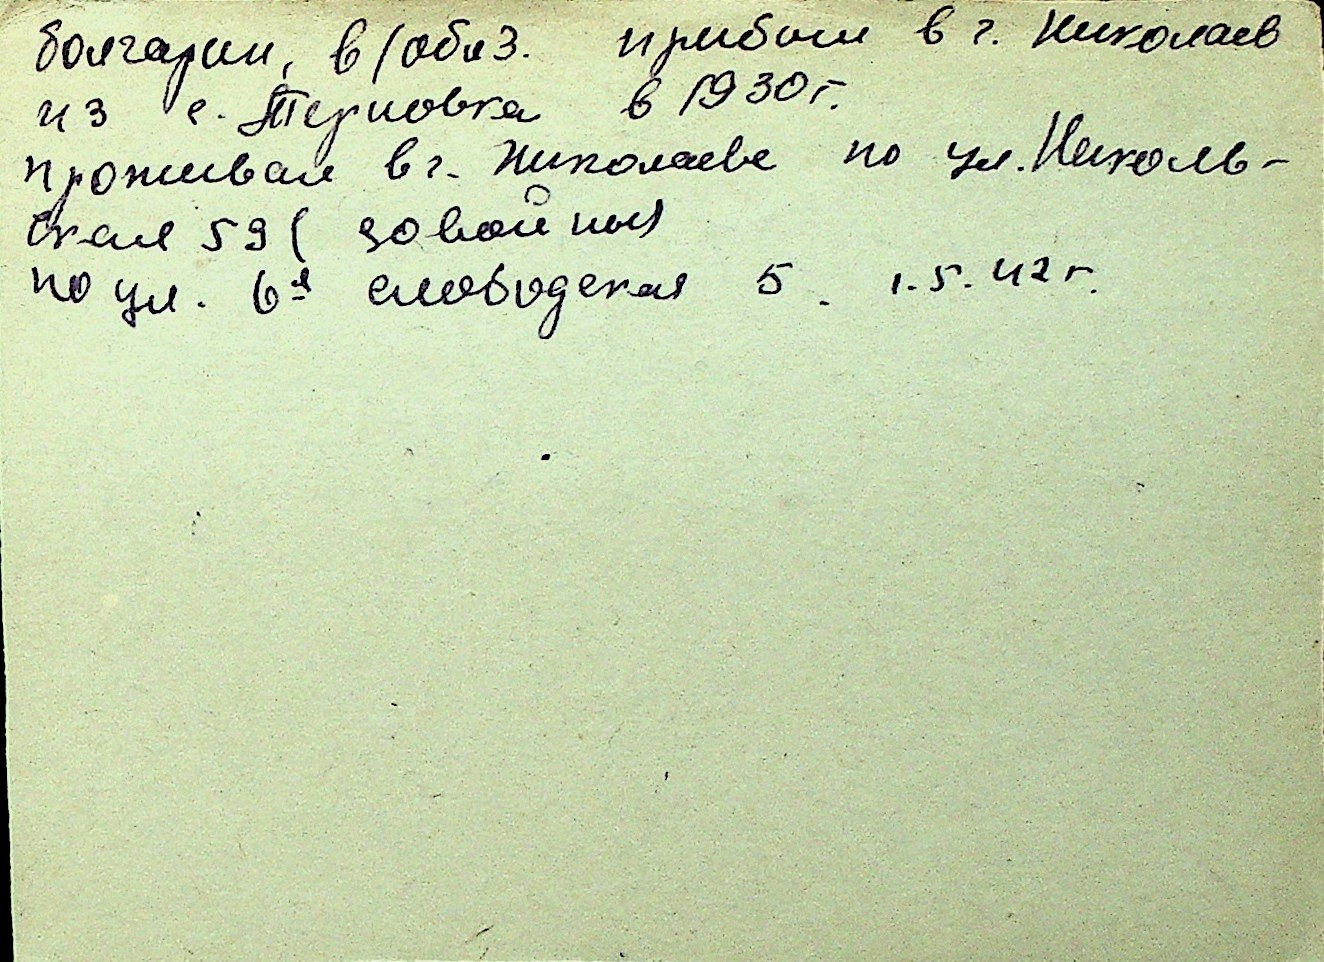 болгарин, в/обяз. прибыл в г. Николаев
из с. Терновка в 1930 г.
проживал в г. Николаеве по ул. Николь-
ская 59 ( до войны)
по ул. 6я слободская 5. 1.5.42 г.